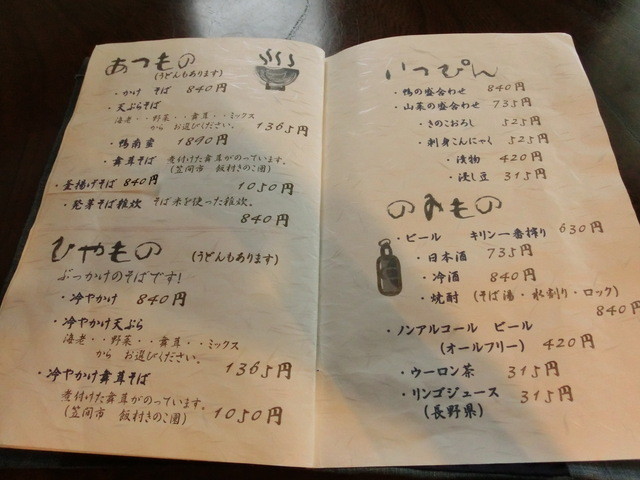 あつもの
(うどんもあります)
・かけ そば 840円
・天ぷらそば
海老・・野菜・・舞茸・・ミックス
から お選びください。 1365円
・鴨南蛮 1890円
・舞茸そば 煮付けた舞茸がのっています。
(笠間市 飯村きのこ園)
1050円
・釜揚げそば 840円
・発芽そば雑炊 そば米を使った雑炊。
840円
ひやもの (うどんもあります)
ぶっかけのそばです!
・冷やかけ 840円
・冷やかけ天ぷら
海老・・野菜・・舞茸・・ミックス
から お選びください。
1365円
・冷やかけ舞茸そば
煮付けた舞茸がのっています。
(笠間市 飯村きのこ園) 1050円
いっぴん
・鴨の盛合わせ 840円
・山菜の盛合わせ 735円
・きのこおろし 525円
・刺身こんにゃく 525円
・漬物 420円
・浸し豆 315円
のみもの
・ビール キリン一番搾り 630円
・日本酒 735円
・冷酒 840円
・焼酎 (そば湯・水割り・ロック)
840円
・ノンアルコール ビール
(オールフリー) 420円
・ウーロン茶 315円
・リンゴジュース 315円
(長野県)